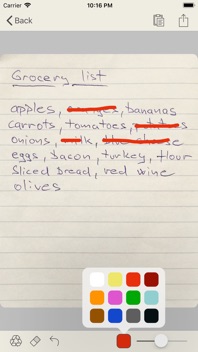 Carrier
10:16 PM
Back
Grocery list
apples, bananas
carrots, tomatoes,
onions,
eggs, bacon, turkey, flour
Sliced bread, red wine
olives